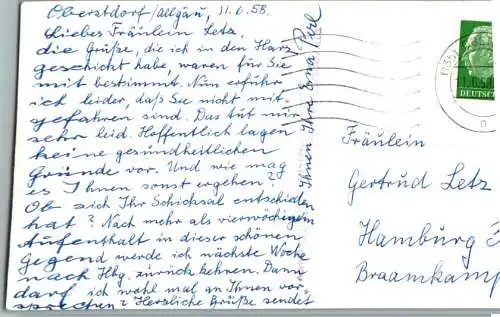 Oberstdorf/Allgäu, 11.6.58.
Liebes Fräulein Letz,
die Grüße, die ich in den Harz
geschickt habe, waren für Sie
mit bestimmt. Nun erfuhr
ich leider, daß Sie nicht mit-
gefahren sind. Das tut mir
sehr leid. Hoffentlich lagen
keine gesundheitlichen
Gründe vor. Und wie mag
es Ihnen sonst ergehen?
Ob sich Ihr Schicksal entschieden
hat? Nach mehr als vierwöchigem
Aufenthalt in dieser schönen
Gegend werde ich nächste Woche
nach Hbg. zurück kehren. Dann
darf ich wohl mal an Ihnen vor-
sprechen? Herzliche Grüße sendet
Ihnen Ihre Erna
DEUTSC
Fräulein
Gertrud Letz
Hamburg
Braamkamp